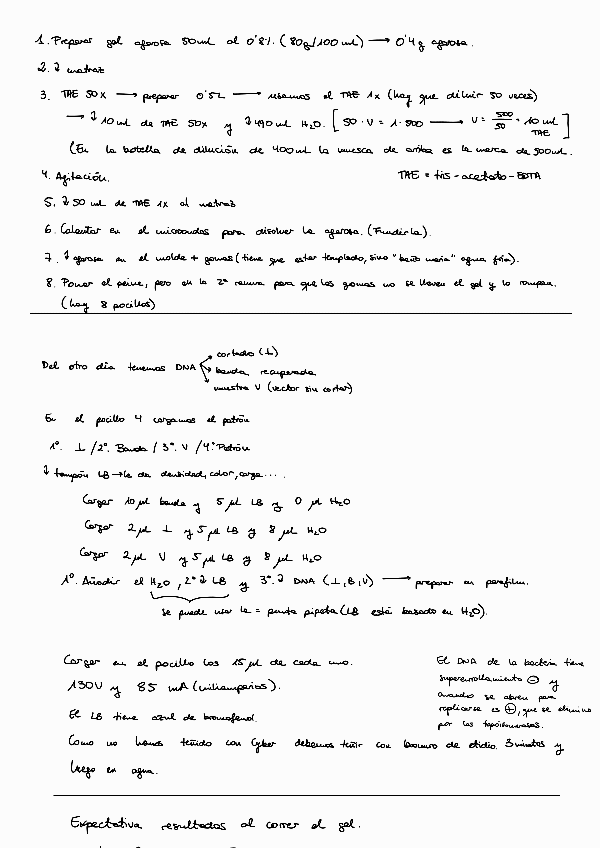 1. Preparar gel agarosa 50ml al 0'8%. (80g/100ml) → 0'4g agarosa.
2. ↓ matraz
3. TAE 50X → preparar 0'5L → usamos el TAE 1x (hay que diluir 50 veces)
→ ↓ 10 ml de TAE 50X y ↓ 490 ml H₂O. [50 · V = 1 · 500 → V = 500/50 = 10 ml TAE]
(En la botella de dilución de 400ml la muesca de arriba es la marca de 500ml.
4. Agitación.
TAE = tris - acetato - EDTA
5. ↓ 50 ml de TAE 1X al matraz
6. Calentar en el microondas para disolver la agarosa. (Fundirla).
7. ↓ agarosa en el molde + gomas (tiene que estar templado, sino "baño maría" agua fría).
8. Poner el peine, pero en la 2ª ranura para que las gomas no se lleven el gel y lo rompan.
(hay 8 pocillos)
Del otro día tenemos DNA
cortado (⊥)
banda recuperada
muestra V (vector sin cortar)
En el pocillo 4 cargamos el patrón
1º. ⊥ / 2º. Banda / 3º. V / 4º. Patrón
↓ tampón LB → le da densidad, color, carga ....
Cargar 10 μl banda y 5 μl LB y 0 μl H₂O
Cargar 2 μl ⊥ y 5 μl LB y 8 μl H₂O
Cargar 2 μl V y 5 μl LB y 8 μl H₂O
1º. Añadir el H₂O, 2º ↓ LB y 3º. ↓ DNA (⊥, B, V) → preparar en parafilm.
se puede usar la = punta pipeta (LB está basado en H₂O).
Cargar en el pocillo los 15 μl de cada uno.
130V y 85 mA (miliamperios).
El LB tiene azul de bromofenol.
El DNA de la bacteria tiene
superenrollamiento ⊖ y
cuando se abren para
replicarse es ⊕, que se elimina
por las topoisomerasas.
Como no hemos teñido con Cyber debemos teñir con bromuro de etidio. 3 minutos y
luego en agua.
Expectativa resultados al correr el gel.